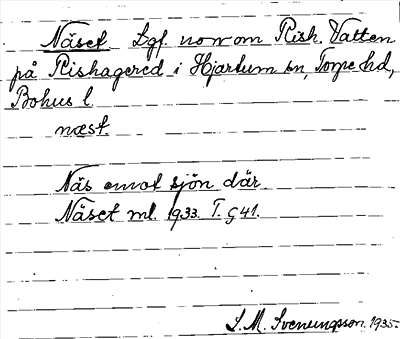 Näset Lgf. norr om Rish. Vatten
på Rishagered i Hjärtum sn, Torpe hd,
Bohus l.
næst.
Näs emot sjön där
Näset ml. 1933. T. G 41.
S. M. Svenungsson. 1935.